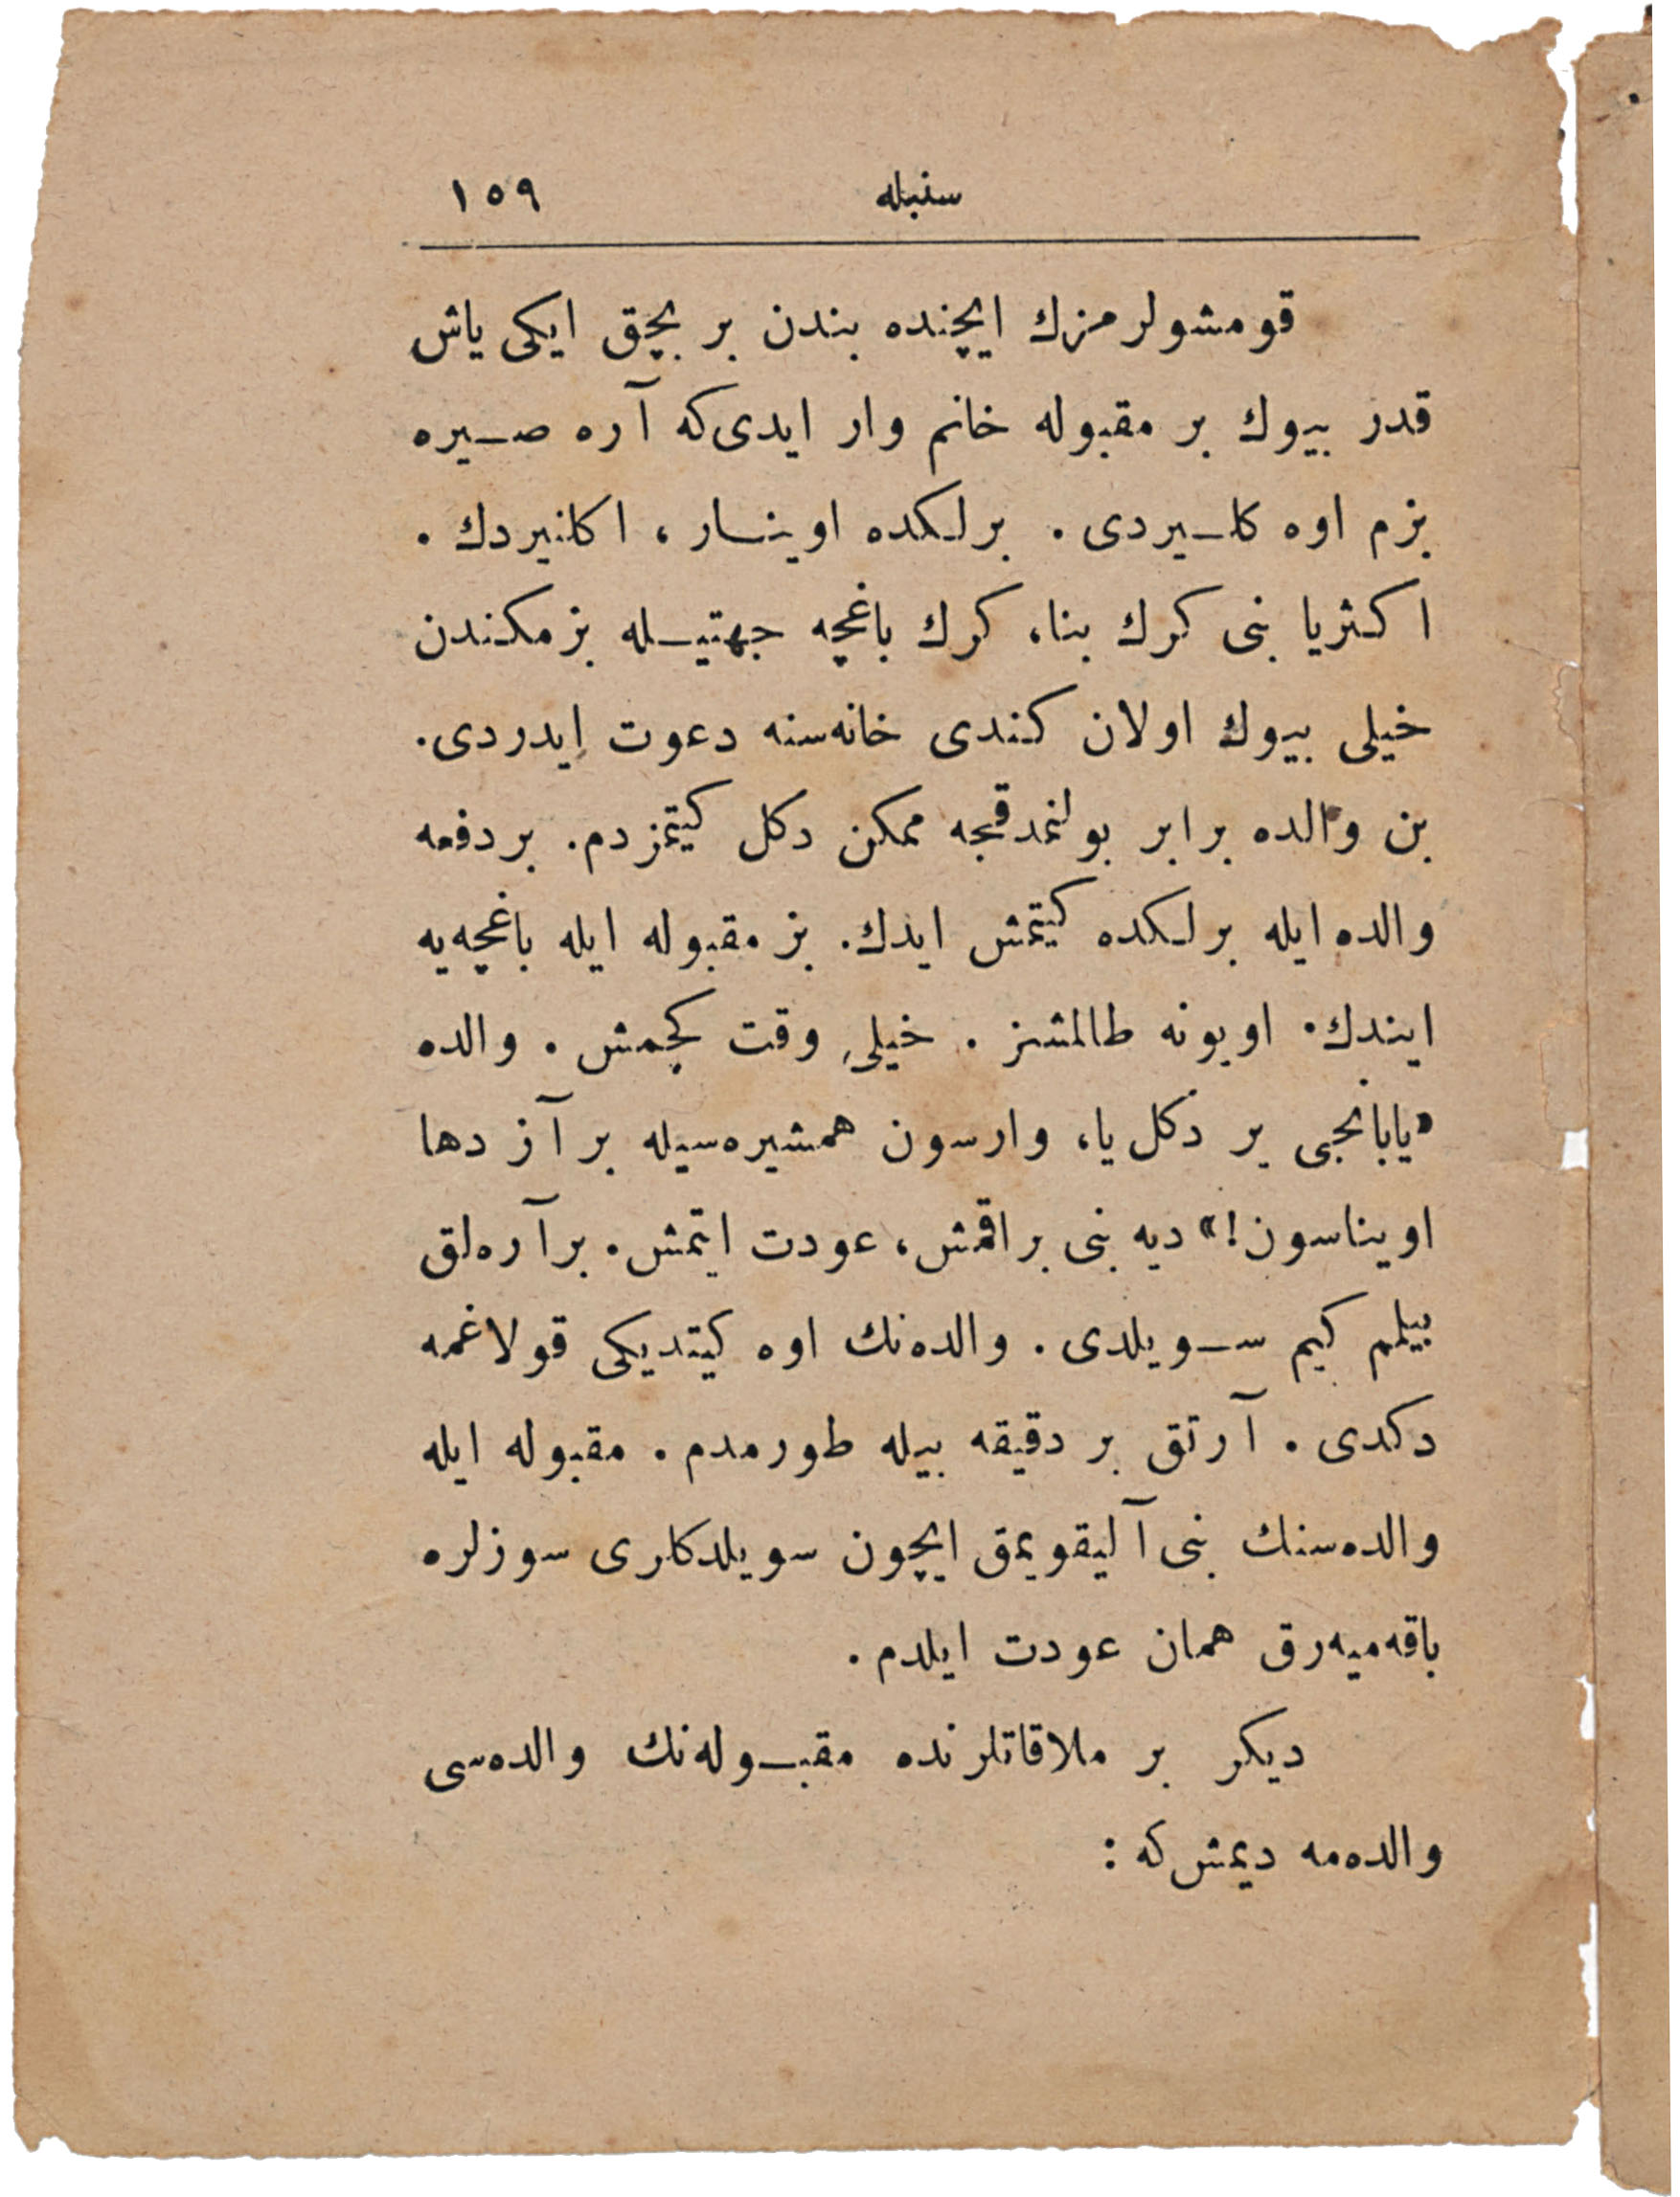 سنبله ١٥٩
قومشولرمزك ايچنده بندن بر بچق ايكی ياش
قدر بيوك بر مقبوله خانم وار ايدی‌كه آره صـيره
بزم اوه كلـيردی . برلكده اوينـار ، اكلنيردك .
اكثريا بنی كرك بنا، كرك باغچه جهتيـله بزمكندن
خيلی بيوك اولان كندی خانه‌سنه دعوت ايدردی.
بن والده برابر بولنمدقجه ممكن دكل كيتمزدم. بردفعه
والده ايله برلكده كيتمش ايدك. بز مقبوله ايله باغچه‌يه
ايندك. اويونه طالمشز . خيلی وقت كچمش . والده
«يابانجی ير دكل يا، وارسون همشيره‌سيله بر آز دها
اويناسون!» ديه بنی براقمش، عودت ايتمش. برآره‌لق
بيلمم كيم سـويلدی . والده‌نك اوه كيتديكی قولاغمه
دكدی . آرتق بر دقيقه بيله طورمدم . مقبوله ايله
والده‌سنك بنی آليقويمق ايچون سويلدكلری سوزلره
باقه‌ميه‌رق همان عودت ايلدم .
ديكر بر ملاقاتلرنده مقبـوله‌نك والده‌سی
والده‌مه ديمش‌كه :